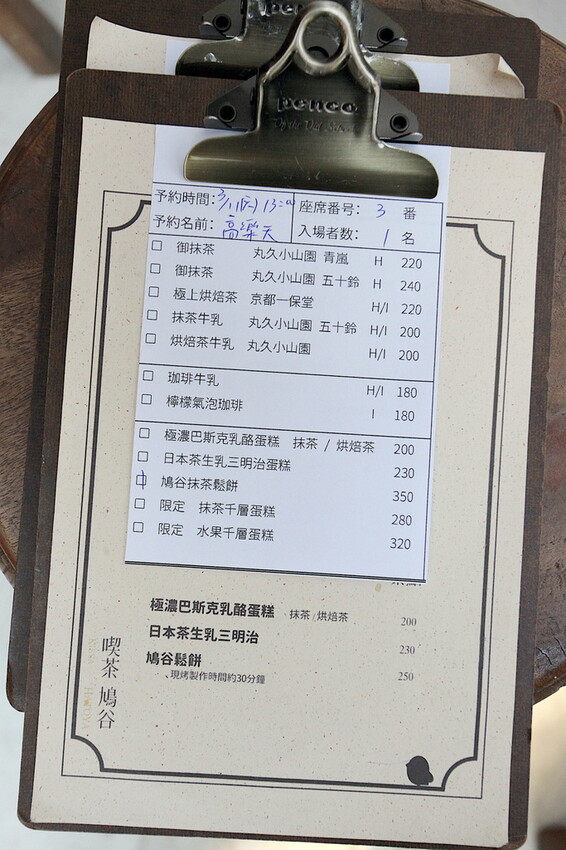 penco
penco
予約時間：3/11(六) 13:00 座席番号： 3 番
予約名前：高樂天 入場者数： 1 名
御抹茶 丸久小山園 青嵐 H 220
御抹茶 丸久小山園 五十鈴 H 240
極上烘焙茶 京都一保堂 H/I 220
抹茶牛乳 丸久小山園 五十鈴 H/I 200
烘焙茶牛乳 丸久小山園 H/I 200
珈琲牛乳 H/I 180
檸檬氣泡珈琲 I 180
極濃巴斯克乳酪蛋糕 抹茶 / 烘焙茶 200
日本茶生乳三明治蛋糕 230
鳩谷抹茶鬆餅 350
限定 抹茶千層蛋糕 280
限定 水果千層蛋糕 320
極濃巴斯克乳酪蛋糕 抹茶/烘焙茶 200
日本茶生乳三明治 230
鳩谷鬆餅 250
、現烤製作時間約30分鐘
喫茶 鳩谷